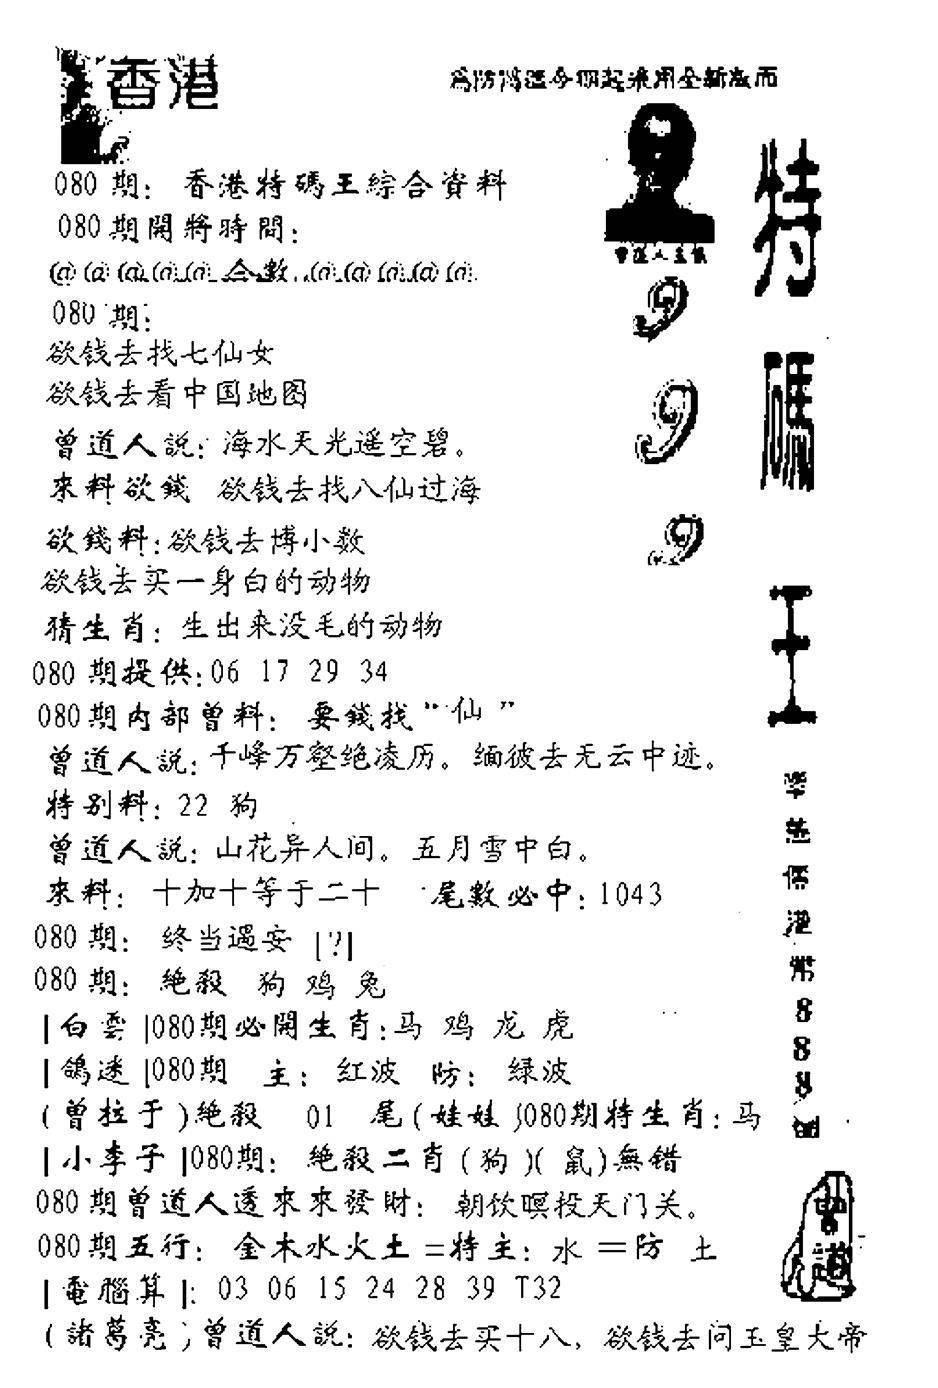 香港
080 期: 香港特碼王綜合資料
080 期開將時間:
@@@@@ 合數 @@@@@
080 期:
欲钱去找七仙女
欲钱去看中国地图
曾道人説: 海水天光遥空碧。
來料欲錢 欲钱去找八仙过海
欲錢料: 欲钱去博小数
欲钱去买一身白的动物
猜生肖: 生出来没毛的动物
080 期提供: 06 17 29 34
080 期内部曾料: 要錢找“仙”
曾道人説: 千峰万壑绝凌历。缅彼去无云中迹。
特别料: 22 狗
曾道人説: 山花异人间。五月雪中白。
來料: 十加十等于二十 尾數必中: 1043
080 期: 终当遇安 [?]
080 期: 絶殺 狗 鸡 兔
|白雲|080期必開生肖: 马 鸡 龙 虎
|鴿迷|080期 主: 红波 防: 绿波
(曾拉于)絶殺 01 尾(娃娃)080期特生肖: 马
|小李子|080期: 絶殺二肖(狗)(鼠)無错
080 期曾道人透來來發財: 朝饮暝投天门关。
080 期五行: 金木水火土=特主: 水=防 土
|電腦算|: 03 06 15 24 28 39 T32
(諸葛亮)曾道人説: 欲钱去买十八, 欲钱去问玉皇大帝
999
特
碼
王
港
幣
8
8
8
曾道